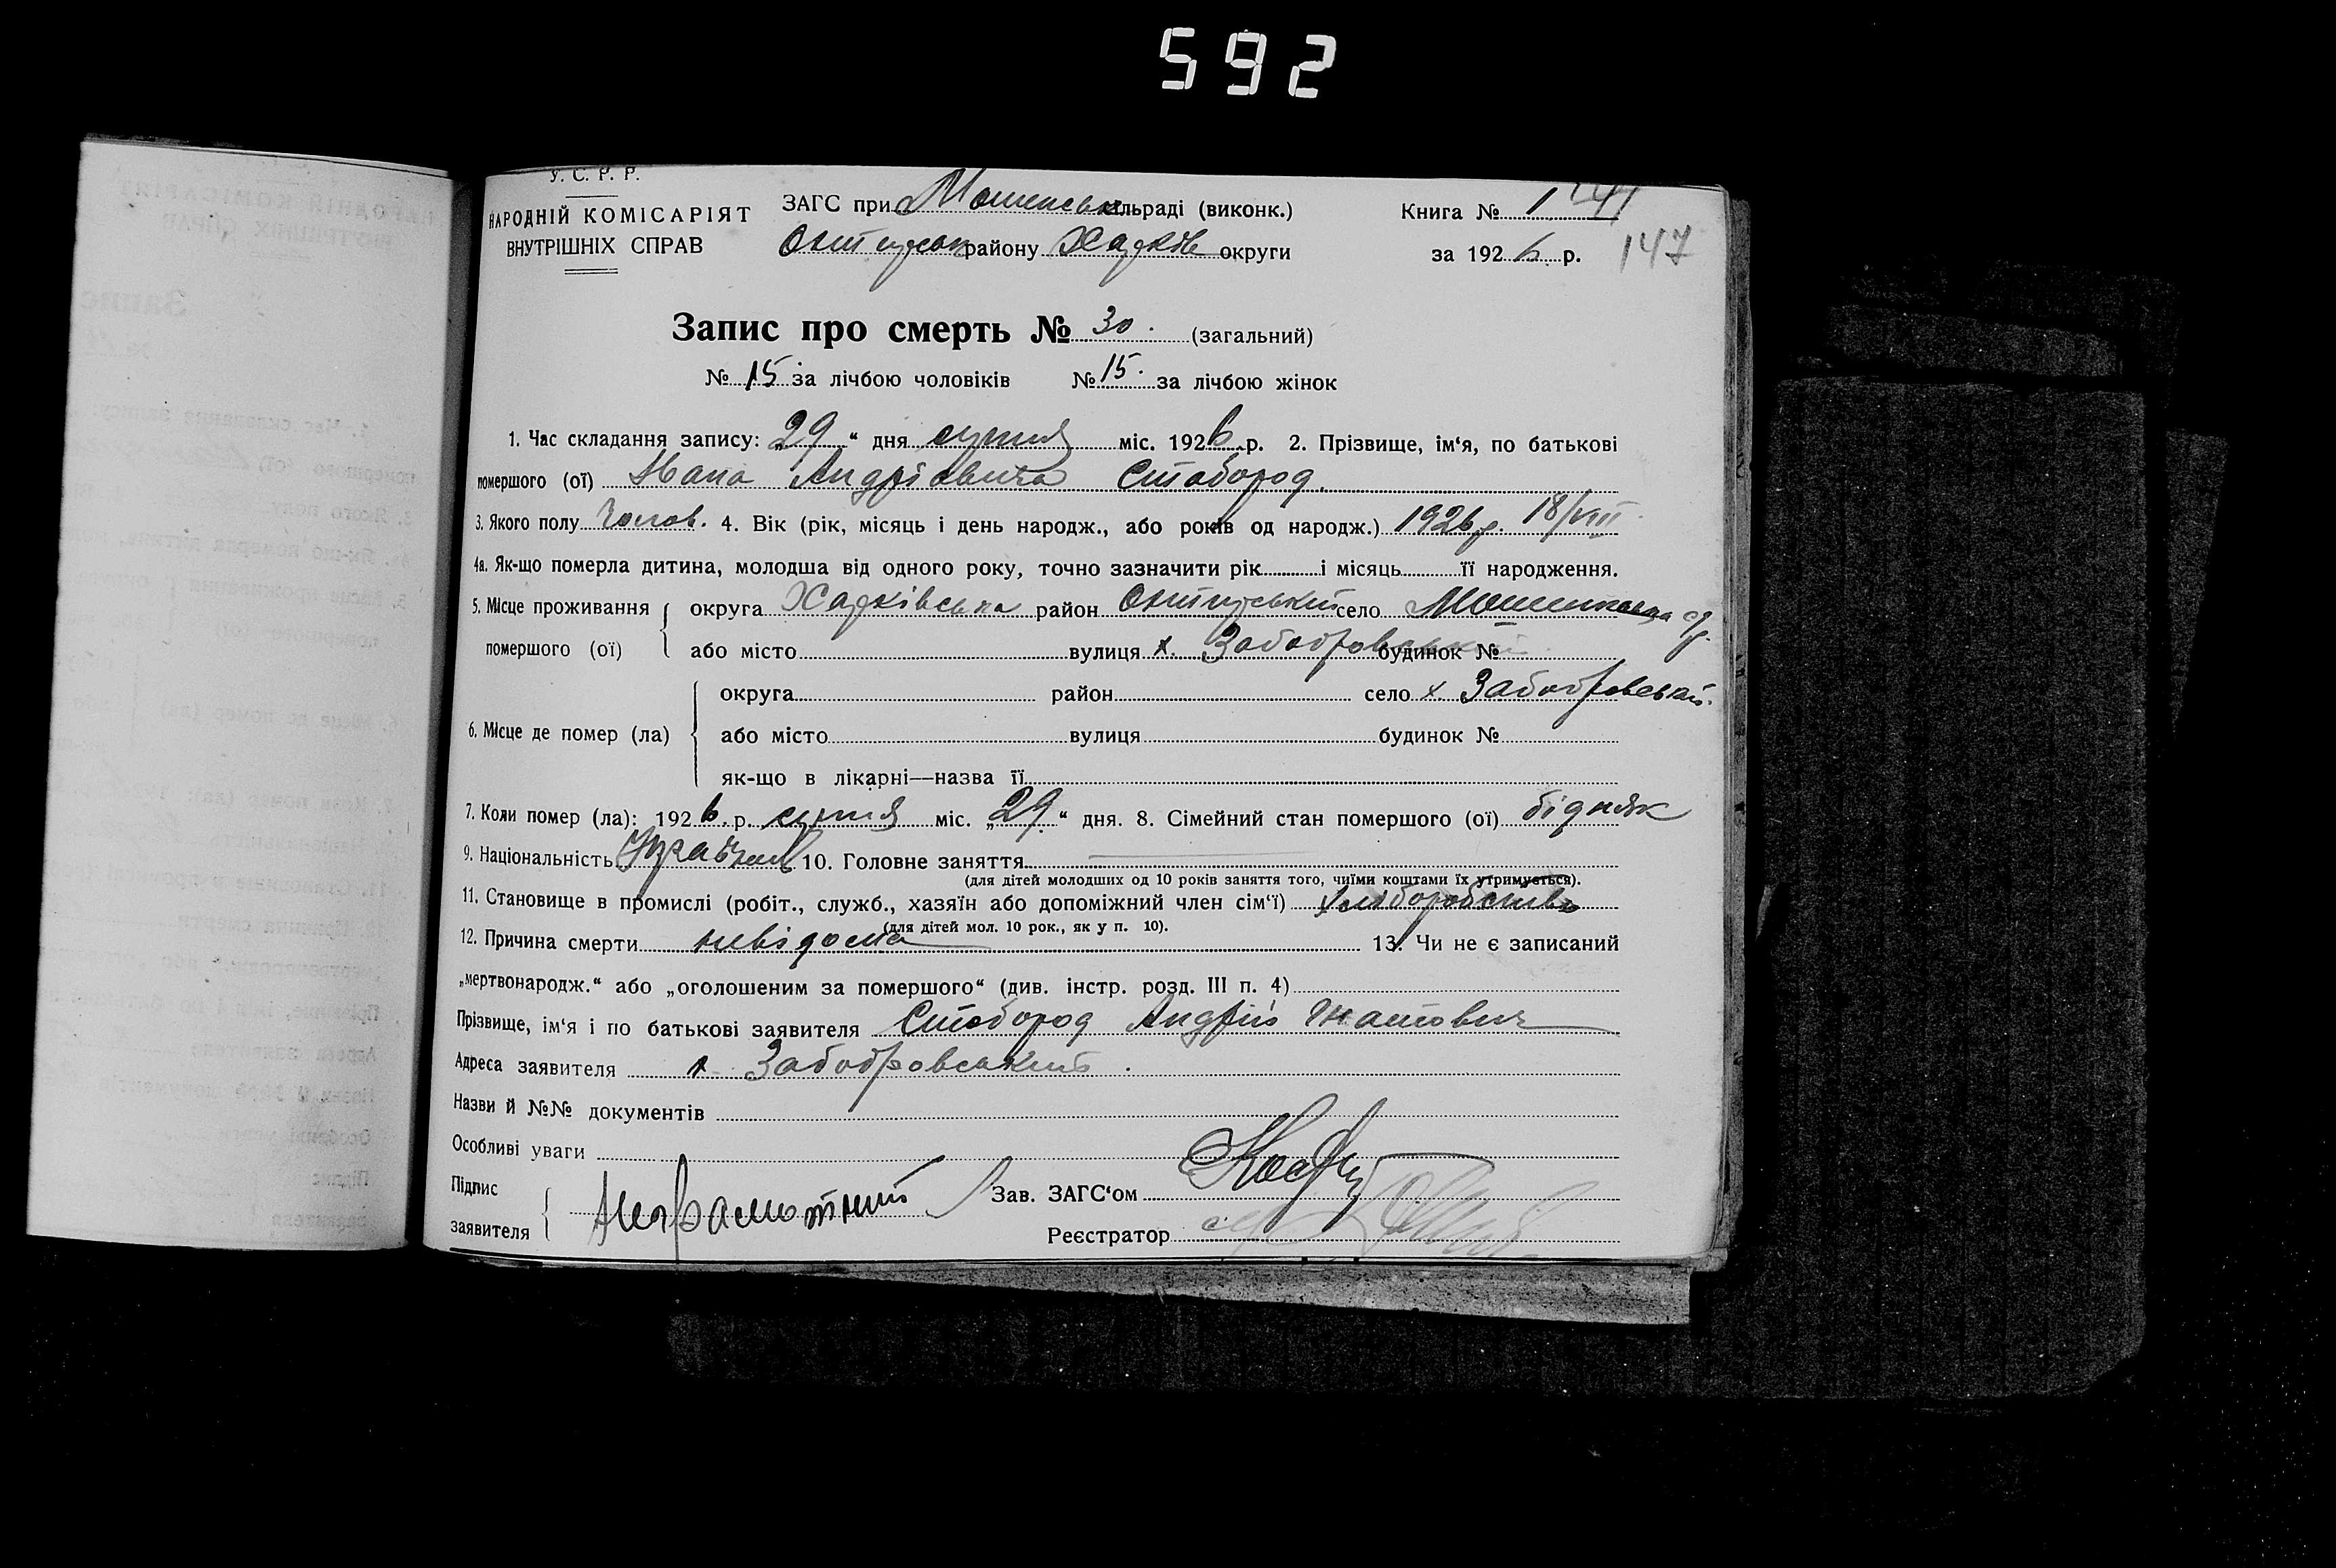 592
У. С. Р. Р.
НАРОДНІЙ КОМІСАРІЯТ
ВНУТРІШНІХ СПРАВ
ЗАГС при сільраді (виконк.)
району Харків округи
Книга № 1
за 1926 р.
147
Запис про смерть № 30. (загальний)
№ 15 за лічбою чоловіків № 15. за лічбою жінок
1. Час складання запису: „29“ дня серпня міс. 1926 р. 2. Прізвище, ім‘я, по батькові
помершого (ої) Івана Андрієвича Стобород.
3. Якого полу Чолов. 4. Вік (рік, місяць і день народж., або років од народж.) 1926 р. 18/VIII
4а. Як-що померла дитина, молодша від одного року, точно зазначити рік і місяць її народження.
5. Місце проживання
помершого (ої)
округа Харківська район село
або місто вулиця х. Забобровський будинок №
6. Місце де помер (ла)
округа район село х Забобровський.
або місто вулиця будинок №
як-що в лікарні—назва її
7. Коли помер (ла): 1926 р. серпня міс. „29“ дня. 8. Сімейний стан помершого (ої) бідняк
9. Національність 10. Головне заняття
(для дітей молодших од 10 років заняття того, чиїми коштами їх утримується).
11. Становище в промислі (робіт., служб., хазяїн або допоміжний член сім‘ї) хліборобство
(для дітей мол. 10 рок., як у п. 10).
12. Причина смерти невідома 13. Чи не є записаний
„мертвонародж.“ або „оголошеним за помершого“ (див. інстр. розд. III п. 4)
Прізвище, ім‘я і по батькові заявителя Стобород Андрій Гнатович
Адреса заявителя х. Забобровський.
Назви й №№ документів
Особливі уваги
Підпис
заявителя
Неграмотний
Зав. ЗАГС‘ом
Реєстратор